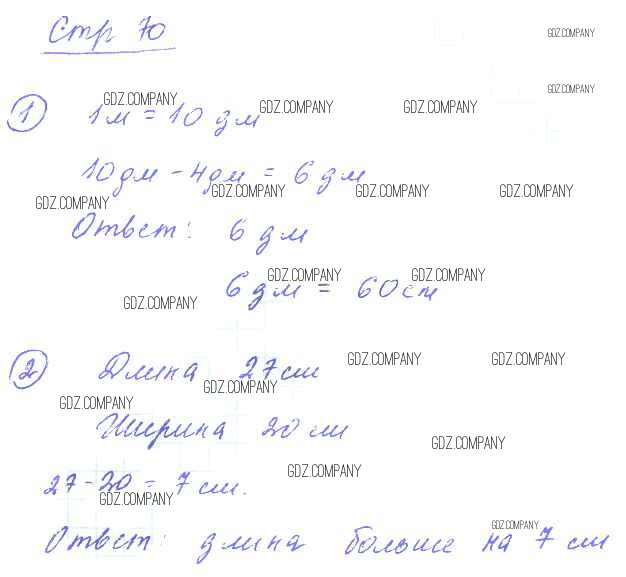 Стр 70
GDZ.COMPANY
GDZ.COMPANY
GDZ.COMPANY GDZ.COMPANY GDZ.COMPANY
1 1м = 10 дм
10дм - 4дм = 6 дм
GDZ.COMPANY GDZ.COMPANY GDZ.COMPANY GDZ.COMPANY
Ответ: 6 дм
GDZ.COMPANY GDZ.COMPANY
6 дм = 60 ст
GDZ.COMPANY
GDZ.COMPANY GDZ.COMPANY
2 Длина 27 см
GDZ.COMPANY
GDZ.COMPANY
Ширина 20 см
GDZ.COMPANY
GDZ.COMPANY
27 - 20 = 7 см.
GDZ.COMPANY
GDZ.COMPANY
Ответ: длина больше на 7 см